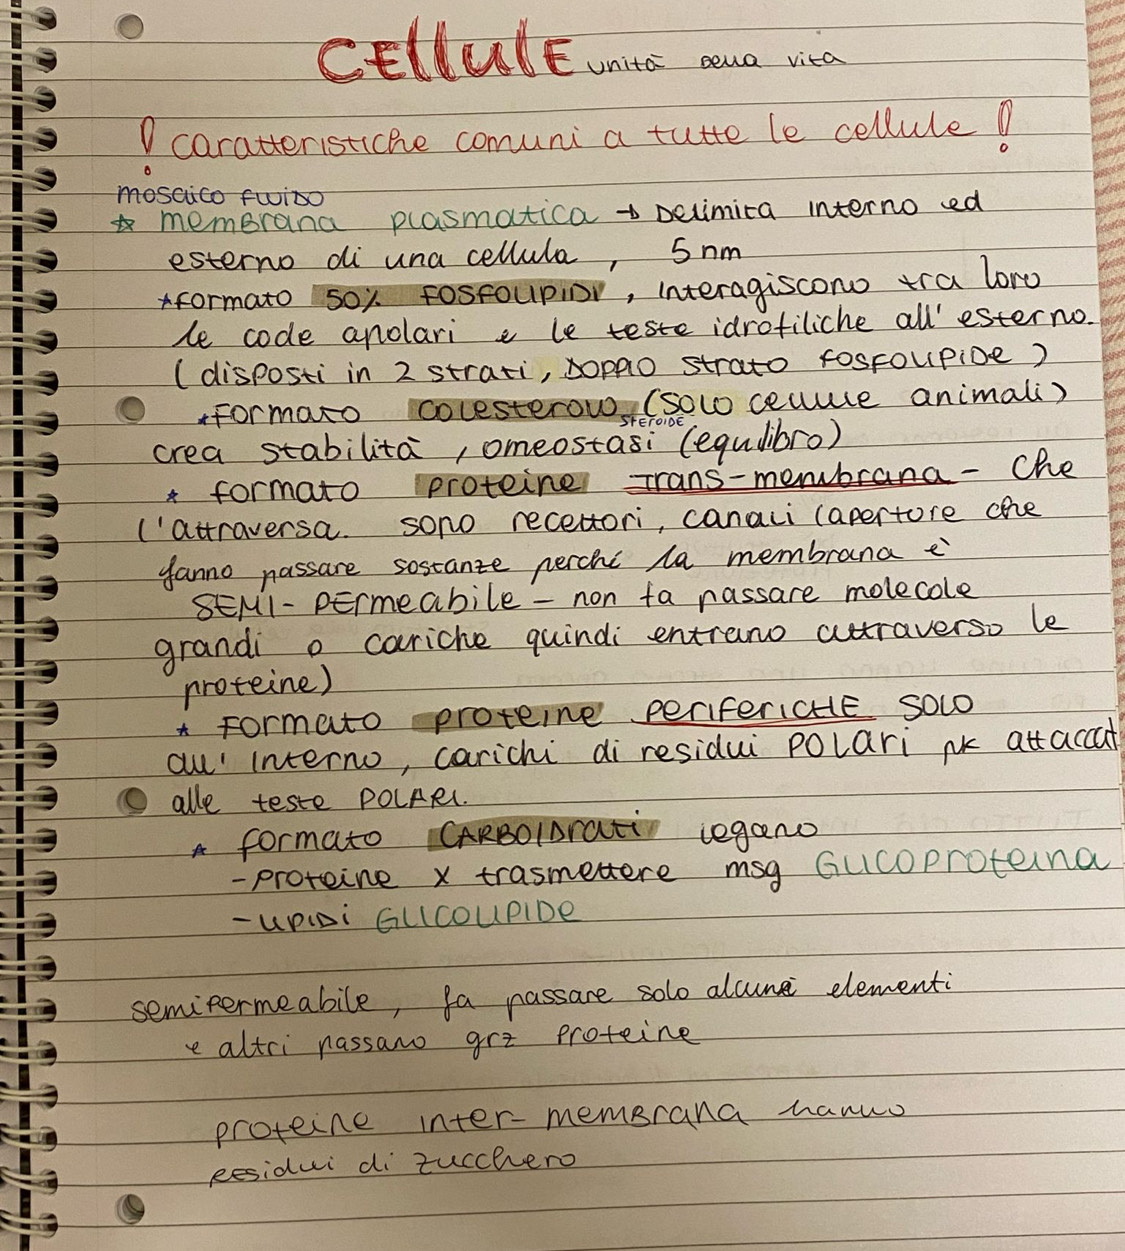 CELLULE unità della vita
! caratteristiche comuni a tutte le cellule !
mosaico fluido
☆ membrana plasmatica → Delimita interno ed
esterno di una cellula, 5 nm
*formato 50% FOSFOLIPIDI, interagiscono tra loro
le code apolari e le teste idrofiliche all'esterno.
(disposti in 2 strati, DOPPIO strato fosfolipide)
*formato colesterolo (SOLO cellule animali)
STEROIDE
crea stabilità, omeostasi (equilibro)
* formato proteine trans-membrana - che
l'attraversa. sono recettori, canali (aperture che
fanno passare sostanze perché la membrana è
SEMI-PERmeabile - non fa passare molecole
grandi o cariche quindi entrano attraverso le
proteine)
* formato proteine PERIFERICHE SOLO
all'interno, carichi di residui POLARI pk attaccat
alle teste POLARI.
* formato CARBOIDrati legano
-proteine x trasmettere msg GLICOPROTEINA
-LIPIDI GLICOLIPIDE
semipermeabile, fa passare solo alcuni elementi
e altri passano grz proteine
proteine inter-membrana hanno
residui di zucchero